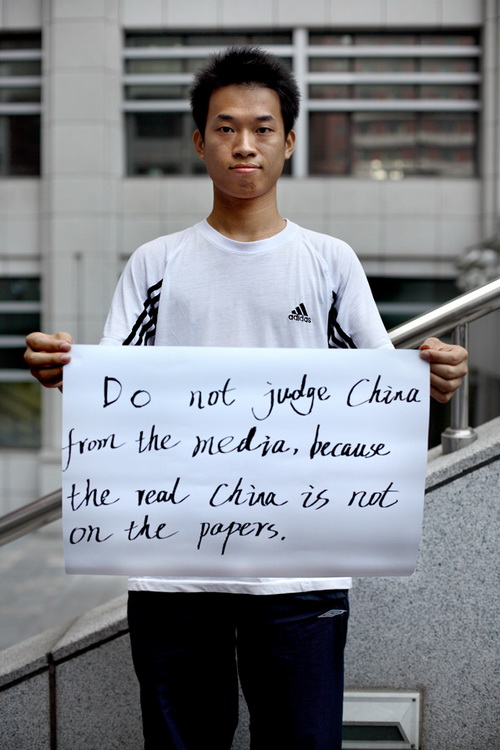 adidas
Do not judge China
from the media, because
the real China is not
on the papers.